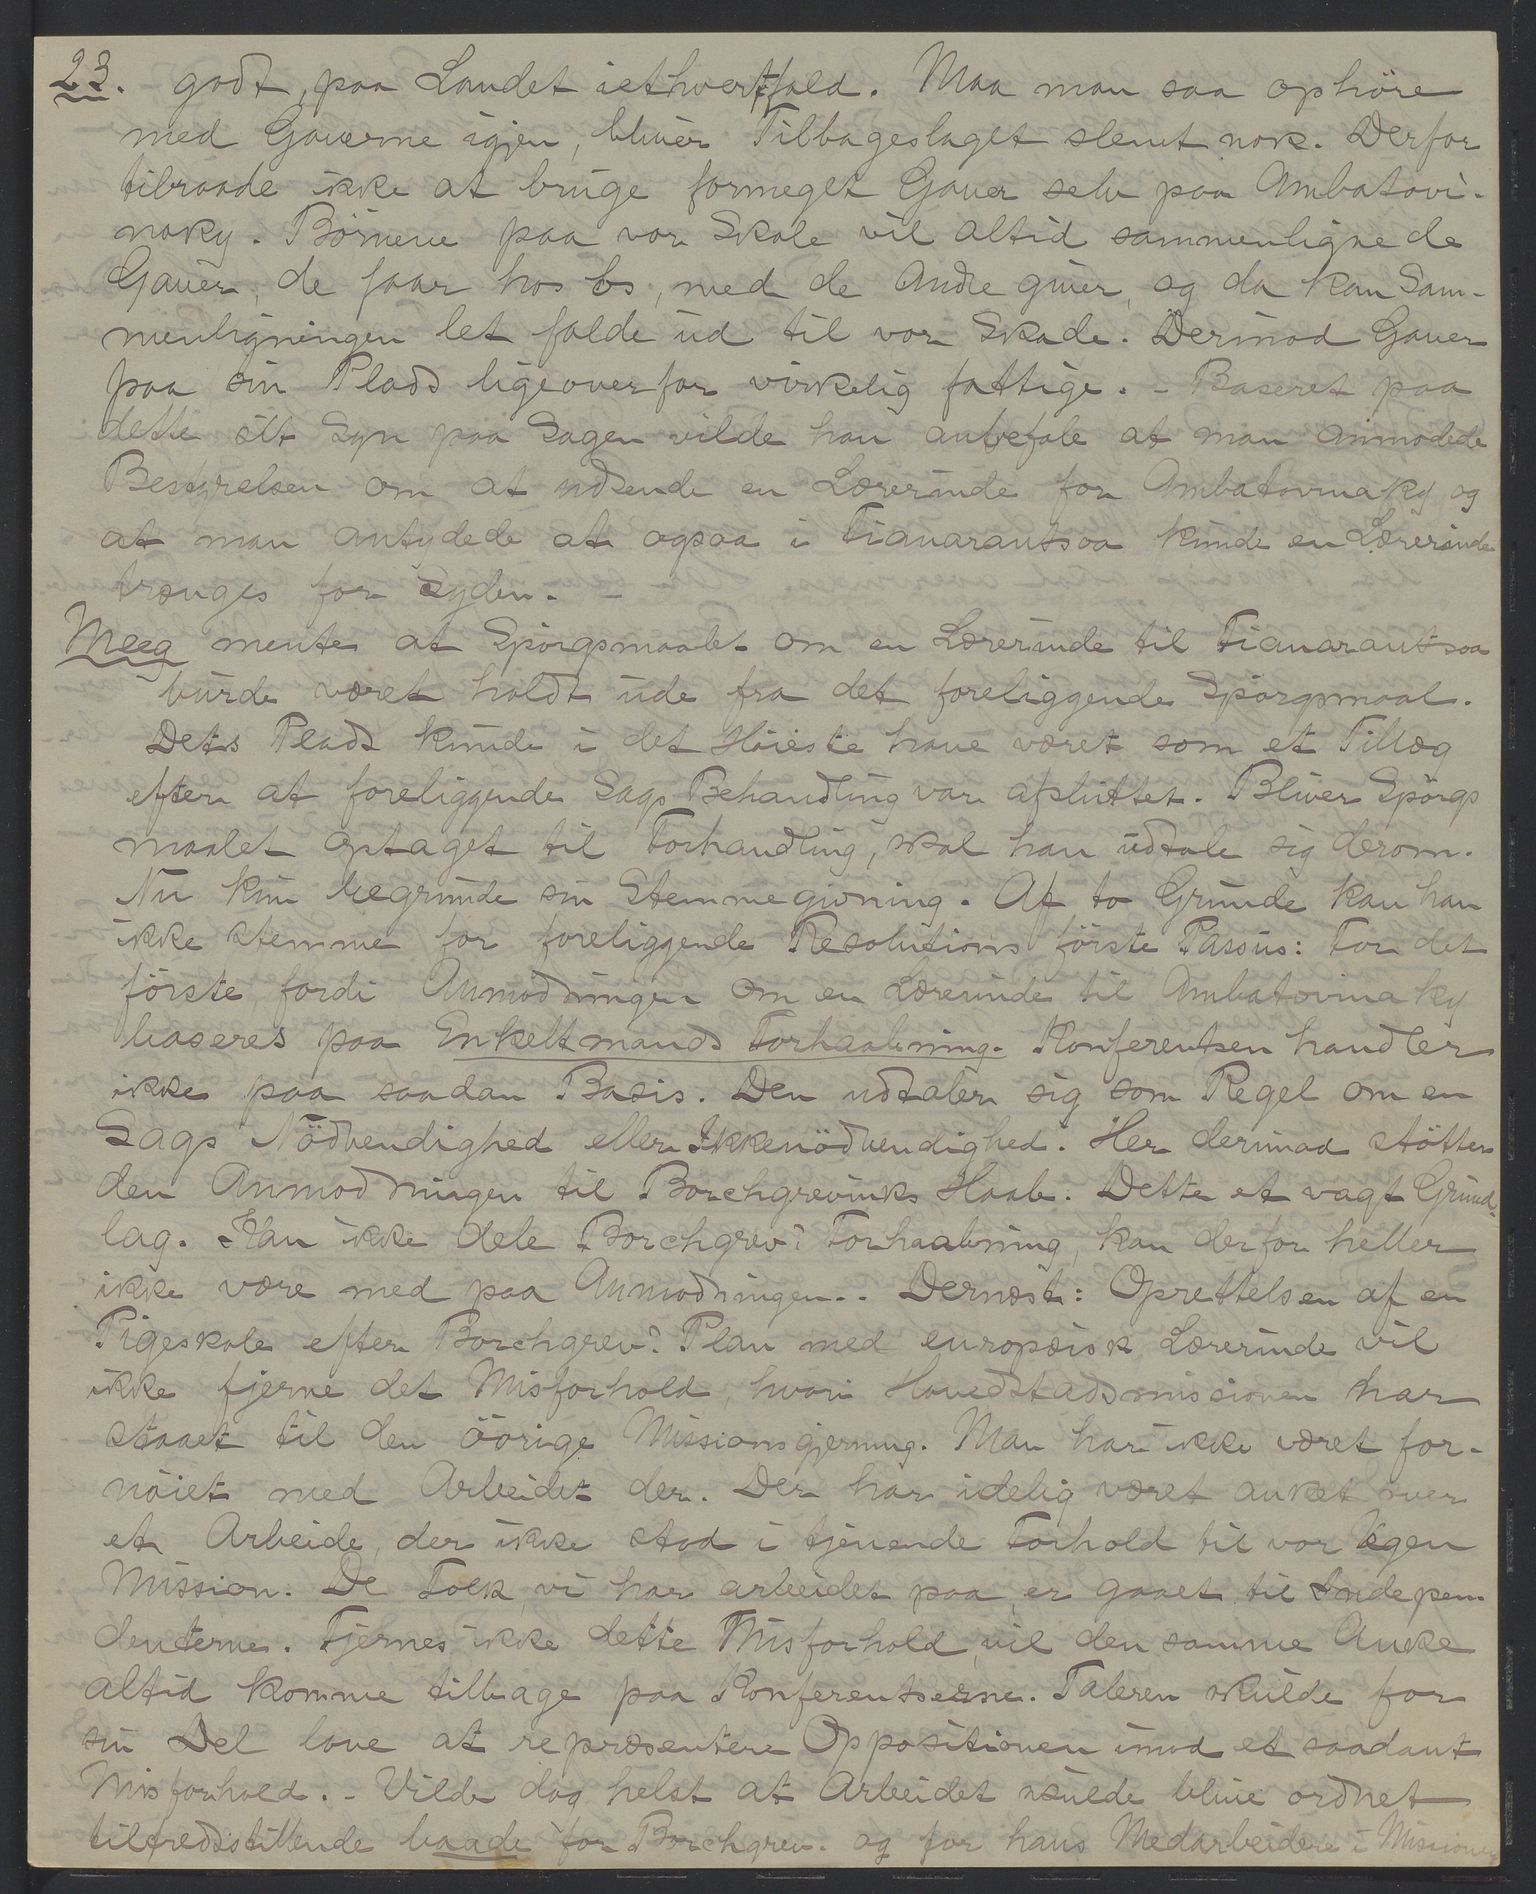 23. godt, paa Landet iethvertfald. Maa man saa ophöre
med Gaverne igjen, bliver Tilbageslaget slemt nok. Derfor
tilraade ikke at bruge formeget Gaver selv paa Ambatovi-
naky. Börnene paa vor Skole vil altid sammenligne de
Gaver, de faar hos os, med de Andre giver, og da kan Sam-
menligningen let falde ud til vor Skade. Derimod Gaver
paa sin Plads ligeoverfor virkelig fattige. - Baseret paa
dette sit Syn paa Sagen vilde han anbefale at man anmodede
Bestyrelsen om at udsende en Lærerinde for Ambatovinaky og
at man antydede at ogsaa i Fianarantsoa kunde en Lærerinde
trænges for Syden. -
Meeg mente at Spörgsmaalet om en Lærerinde til Fianarantsoa
burde været holdt ude fra det foreliggende Spörgsmaal.
Dets Plads kunde i det Höieste have været som et Tillæg
efter at foreliggende Sags Behandling var afsluttet. Bliver Spörgs
maalet optaget til Forhandling, skal han udtale sig derom.
Nu kun begrunde sin Stemmegivning. Af to Grunde kan han
ikke stemme for foreliggende Resolutions förste Passus: For det
förste, fordi Anmodningen om en Lærerinde til Ambatovinaky
baseres paa Enkeltmands Forhaabning. Konferentsen handler
ikke paa saadan Basis. Den udtaler sig som Regel om en
Sags Nödvendighed eller Ikkenödvendighed. Her derimod stötter
den Anmodningen til Borchgrevinks Haab. Dette et vagt Grund-
lag. Kan ikke dele Borchgrev: Forhaabning, kan derfor heller
ikke være med paa Anmodningen. - Dernæst: Oprettelsen af en
Pigeskole efter Borchgrev: Plan med europæisk Lærerinde vil
ikke fjerne det Misforhold, hvori Hovedstadsmissionen har
staaet til den övrige Missionsgjerning. Man har ikke været for-
nöiet med Arbeidet der. Der har idelig været anket over
et Arbeide, der ikke stod i tjenende Forhold til vor Egen
Mission. De Folk, vi har arbeidet paa, er gaaet til Indepen-
denterne. Fjernes ikke dette Misforhold, vil den samme Anke
altid komme tilbage paa Konferentserne. Taleren skulde for
sin Del love at repræsentere Oppositionen imod et saadant
Misforhold. - Vilde dog helst at Arbeidet skulde blive ordnet
tilfredsstillende baade for Borchgrev. og for hans Medarbeidere i Missionen